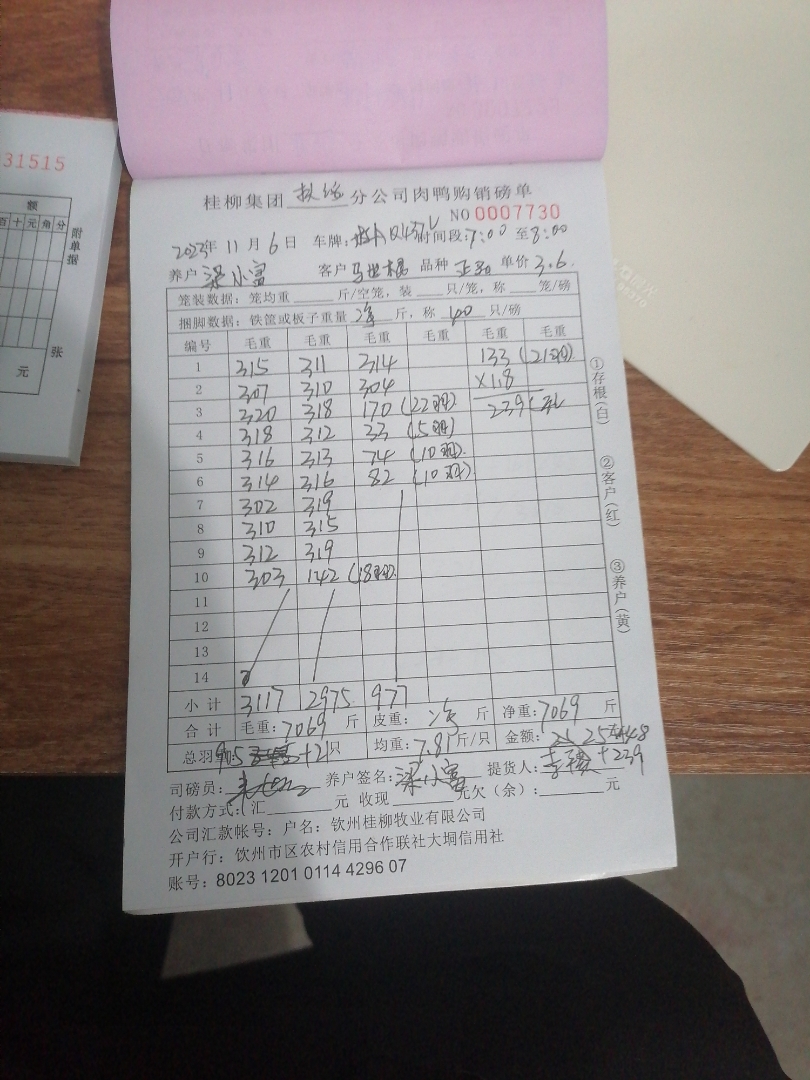 31515
额
百 十 元 角 分
附单据
张
元
桂柳集团 分公司肉鸭购销磅单
NO 0007730
2023年 11月 6日 车牌: 时间段:7:00 至8:00
养户 梁小富 客户 品种 单价 3.6
笼装数据: 笼均重 斤/空笼, 装 只/笼, 称 笼/磅
捆脚数据: 铁筐或板子重量 净 斤, 称 40 只/磅
编号 毛重 毛重 毛重 毛重 毛重 毛重
1 315 311 314 133 (21羽)
2 307 310 304 ×1.8
3 320 318 170 (22羽) 239
4 318 312 33 (5羽)
5 316 313 74 (10羽)
6 314 316 82 (10羽)
7 302 319
8 310 315
9 312 319
10 303 142 (18羽)
11
12
13
14
小计 3117 2975 977
合计 毛重: 7069 斤 皮重: 净 斤 净重: 7069 斤
总羽: 905 +21只 均重: 7.81斤/只 金额: 25448 +239
司磅员: 养户签名: 梁小富 提货人:
付款方式: 汇 元 收现 元欠(余): 元
公司汇款帐号: 户名: 钦州桂柳牧业有限公司
开户行: 钦州市区农村信用合作联社大垌信用社
账号: 8023 1201 0114 4296 07
①存根(白)
②客户(红)
③养户(黄)